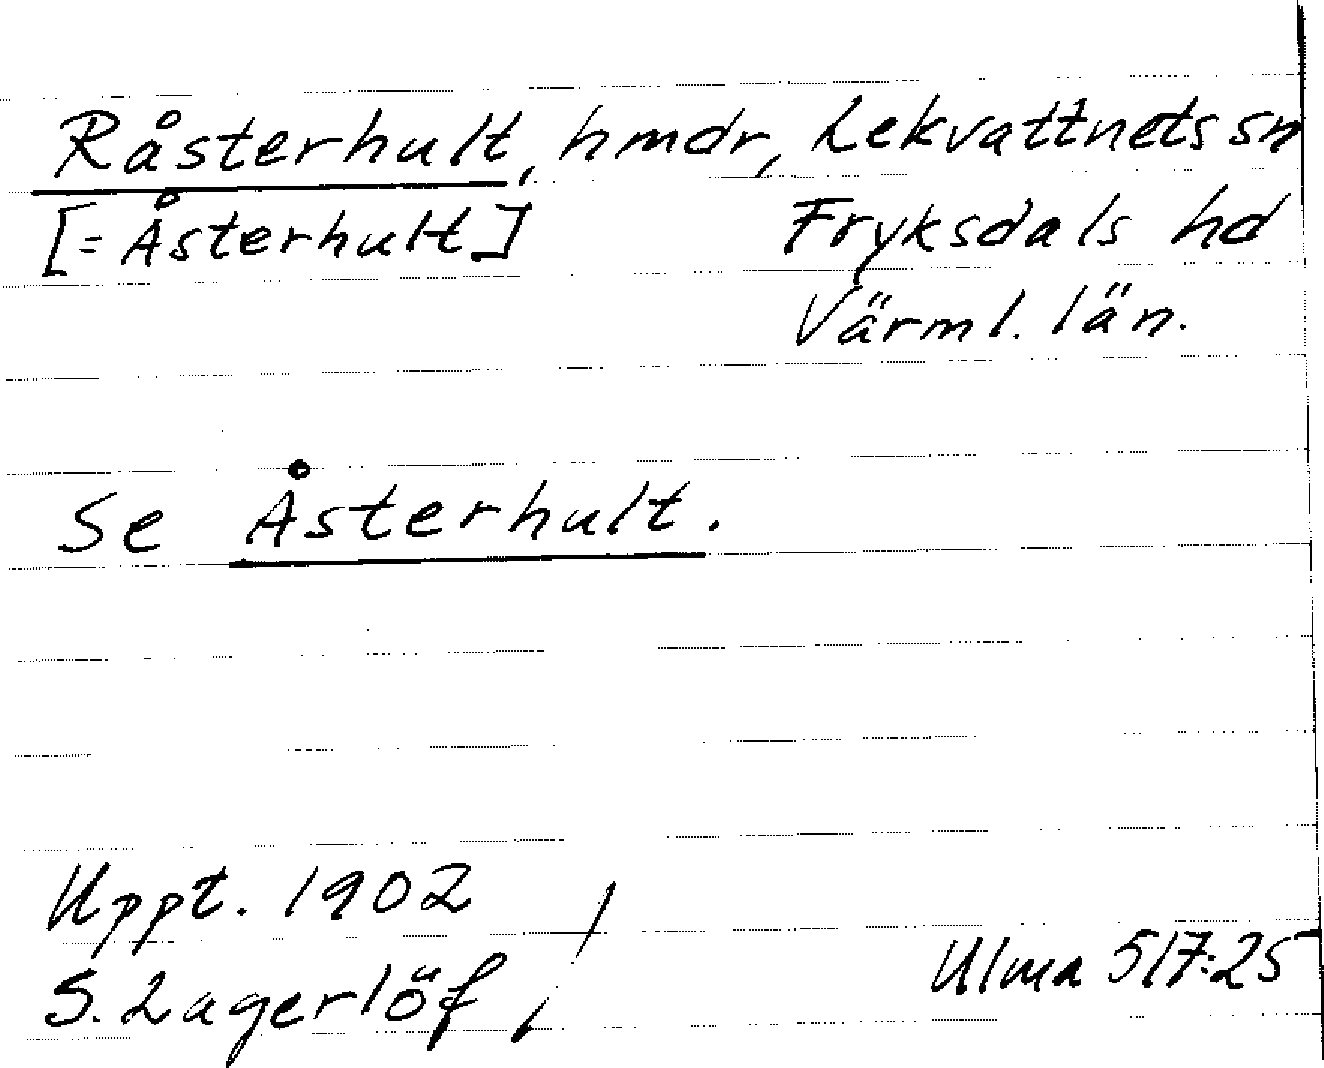 Råsterhult, hmdr, Lekvattnets sn
[= Åsterhult] Fryksdals hd
Värml. län.
Se Åsterhult.
Uppt. 1902
S. Lagerlöf, Ulma 517:25